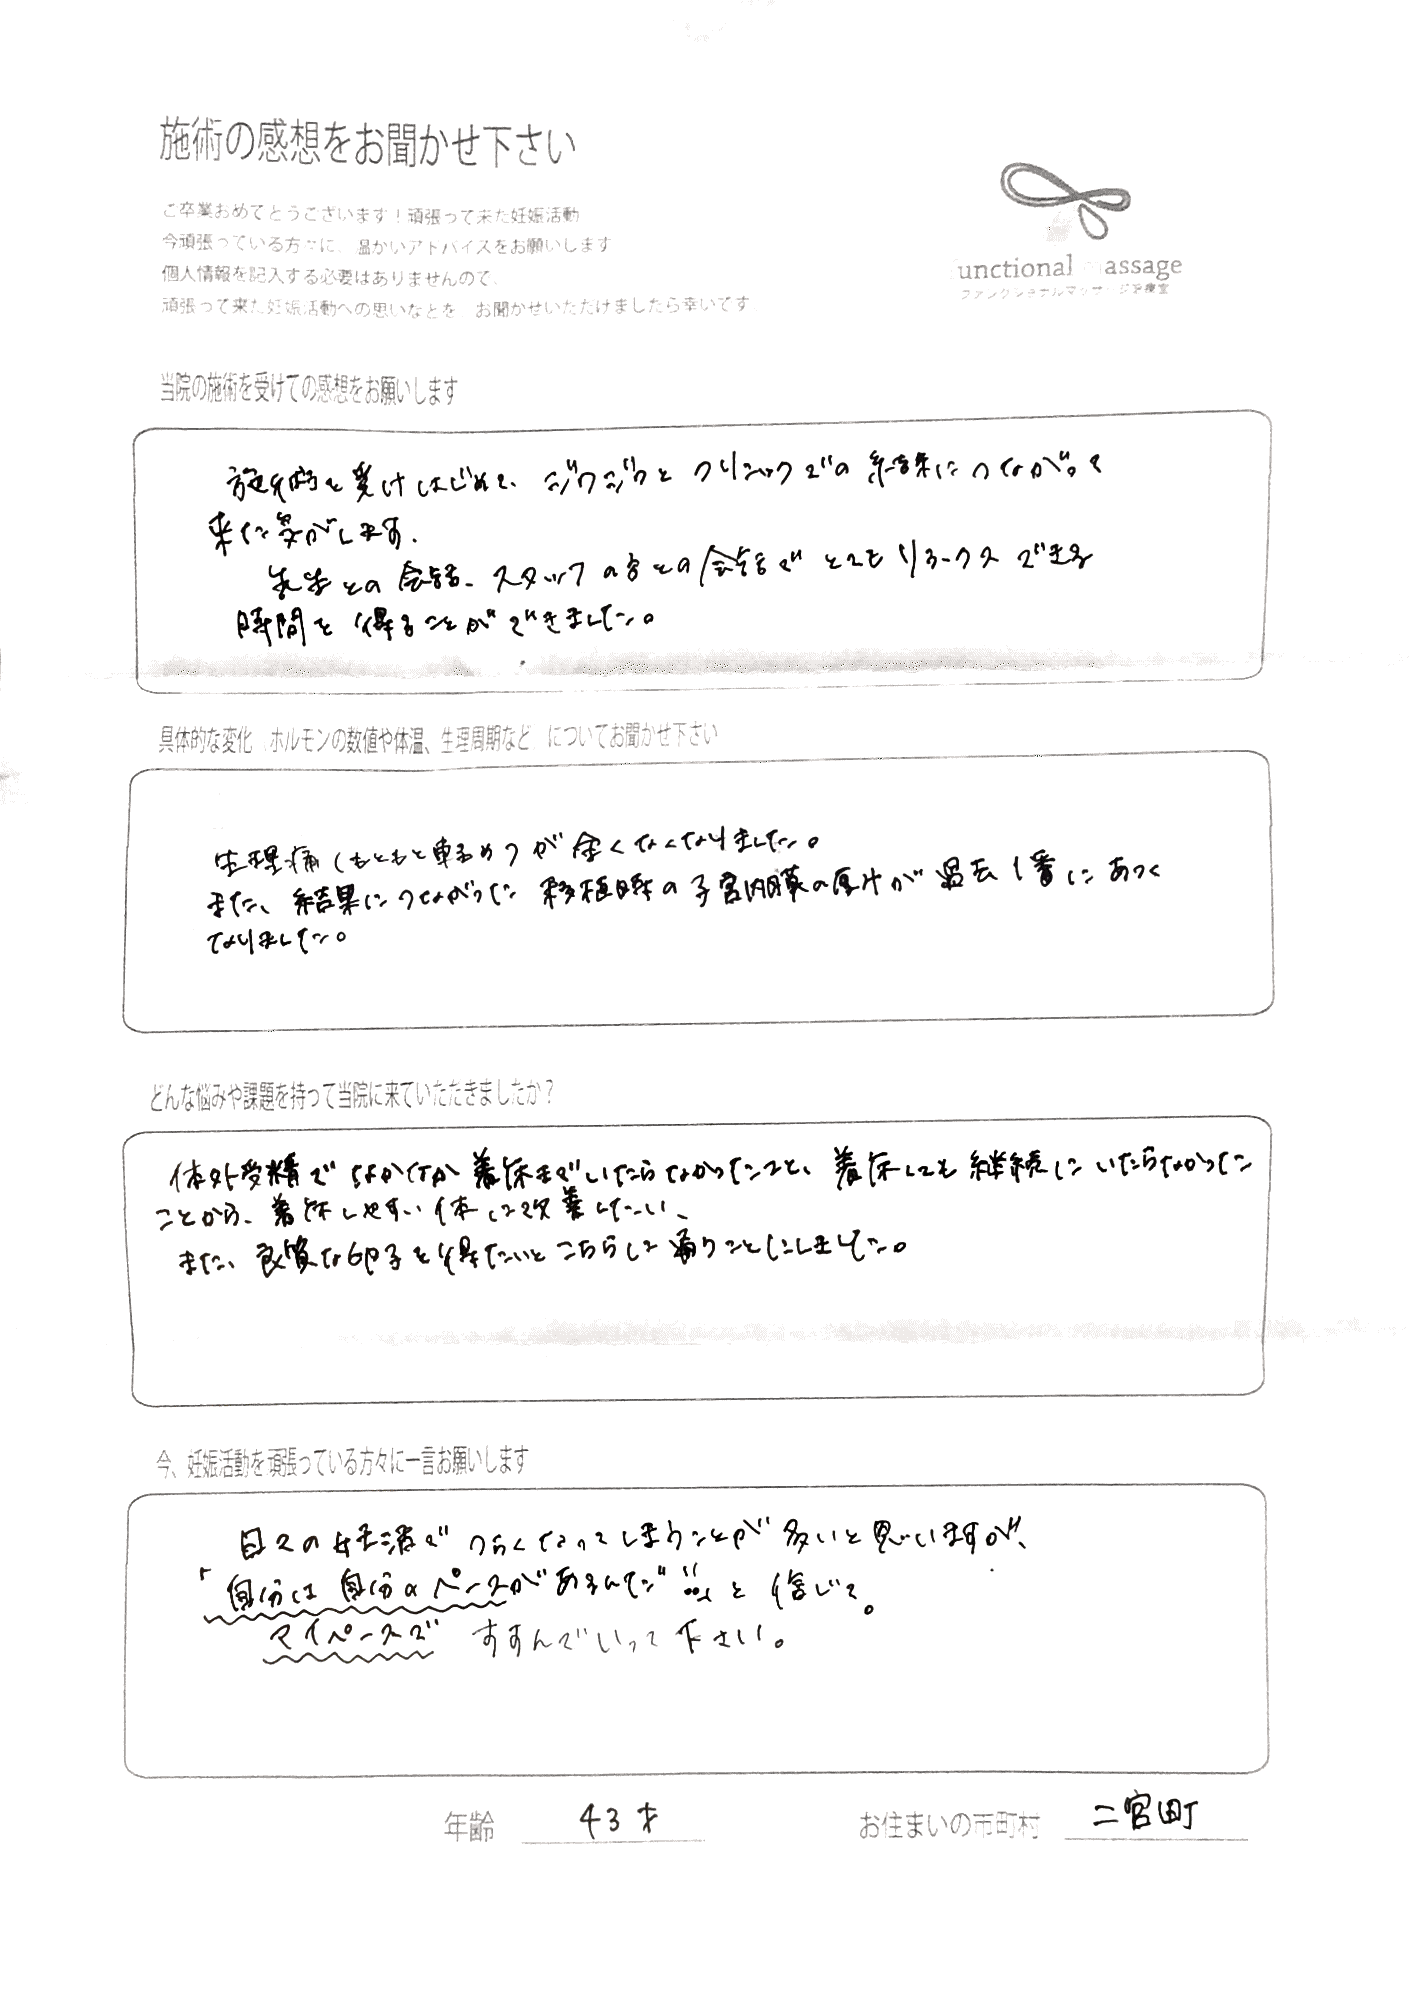 施術の感想をお聞かせ下さい
ご卒業おめでとうございます！頑張って来た妊娠活動
今頑張っている方々に、温かいアドバイスをお願いします
個人情報を記入する必要はありませんので、
頑張って来た妊娠活動への思いなどを お聞かせいただけましたら幸いです
functional massage
ファンクショナルマッサージ治療室
当院の施術を受けての感想をお願いします
施術を受けはじめて、ジワジワと クリニックでの 結果につながって
来た気がします。
先生との会話、スタッフの方との会話で とてもリラックスできる
時間を得ることができました。
具体的な変化 ホルモンの数値や体温、生理周期など についてお聞かせ下さい
生理痛(もともと軽るめ)が全くなくなりました。
また、結果につながった 移植時の子宮内膜の厚みが過去1番にあつく
なりました。
どんな悩みや課題を持って当院に来ていただきましたか？
体外受精でなかなか着床までいたらなかったこと、着床しても継続にいたらなかった
ことから、着床しやすい体に改善したい、
また、良質な卵子を得たいとこちらに通うことにしました。
今、妊娠活動を頑張っている方々に一言お願いします
日々の妊活でつらくなってしまうことが多いと思いますが、
「自分は自分のペースがあるんだ」と信じて。
マイペースで すすんでいって下さい。
年齢 43才
お住まいの市町村 二宮町